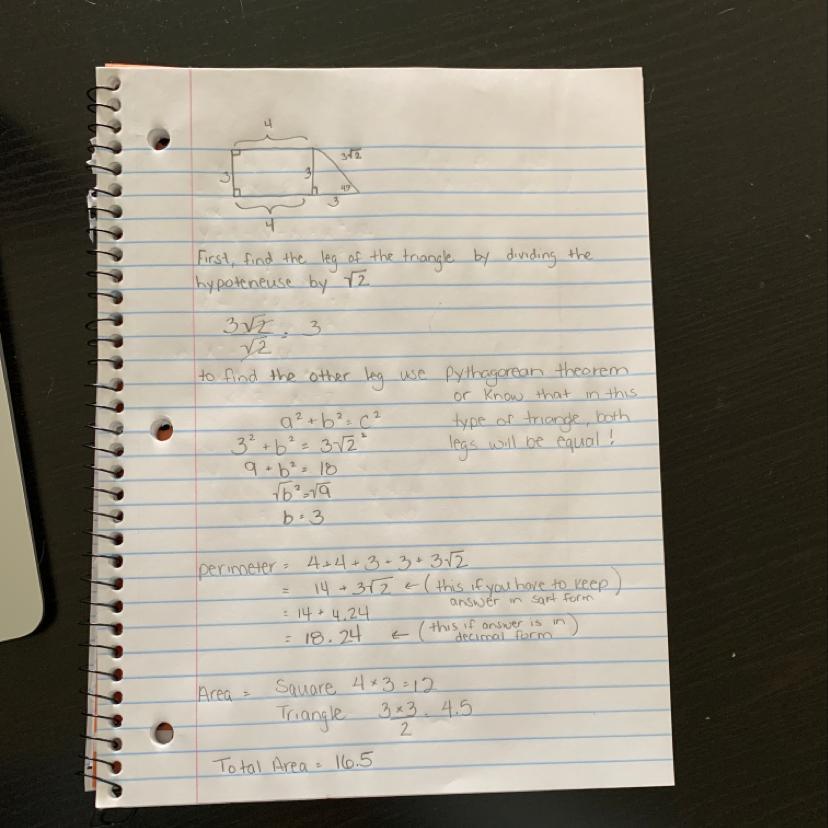 4
3 3 3√2
45
3
4
First, find the leg of the triangle by dividing the
hypoteneuse by √2
3√2/√2 = 3
to find the other leg use Pythagorean theorem
or know that in this
a² + b² = c² type of triangle, both
3² + b² = 3√2² legs will be equal!
9 + b² = 18
√b² = √9
b = 3
perimeter = 4+4+3+3+3√2
= 14 + 3√2 ← (this if you have to keep)
answer in sqrt form
= 14 + 4.24
= 18.24 ← (this if answer is in)
decimal form
Area = Square 4×3=12
Triangle 3×3/2 = 4.5
Total Area = 16.5